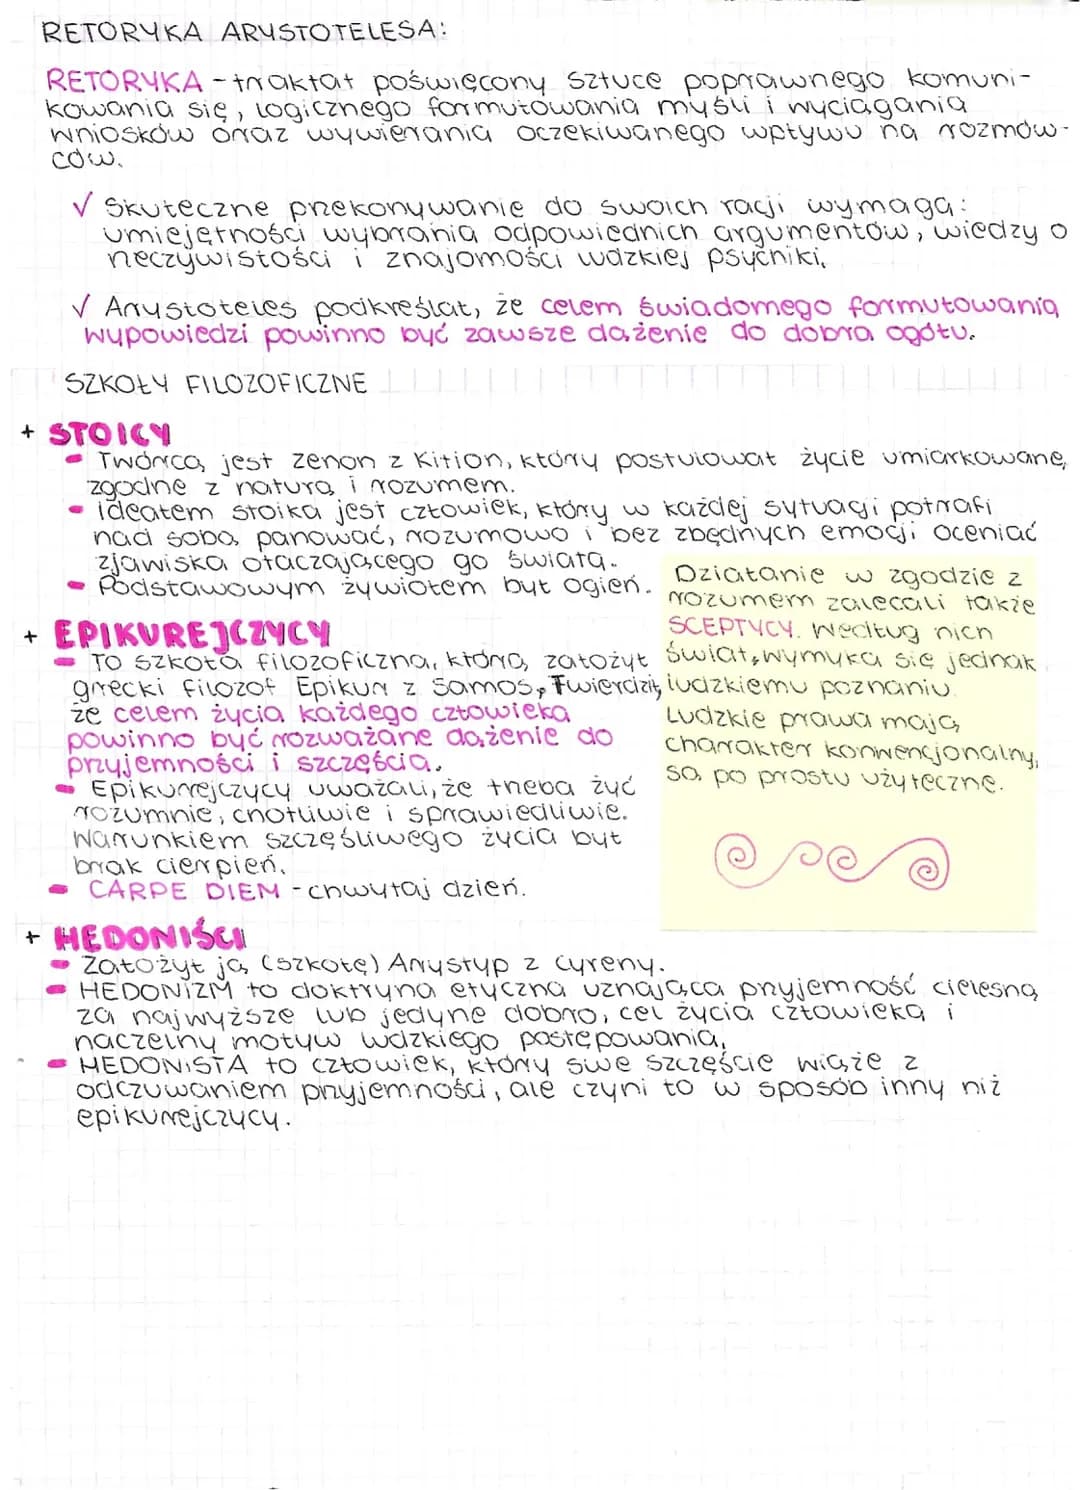 RETORYKA ARYSTOTELESA:
RETORYKA - traktat poświęcony sztuce poprawnego komuni-
kowania się, logicznego formułowania myśli i wyciągania
wniosków oraz wywierania oczekiwanego wpływu na rozmów-
ców.
√ Skuteczne przekonywanie do swoich racji wymaga:
umiejętności wybrania odpowiednich argumentów, wiedzy o
rzeczywistości i znajomości ludzkiej psychiki.
√ Arystoteles podkreślał, że celem świadomego formułowania
wypowiedzi powinno być zawsze dążenie do dobra ogółu.
SZKOŁY FILOZOFICZNE
+ STOICY
- Twórcą jest Zenon z Kition, który postulował życie umiarkowane,
zgodne z naturą i rozumem.
- ideałem stoika jest człowiek, który w każdej sytuacji potrafi
nad sobą panować, rozumowo i bez zbędnych emocji oceniać
zjawiska otaczającego go świata.
- Podstawowym żywiołem był ogień.
+ EPIKUREJCZYCY
- To szkoła filozoficzna, którą założył
grecki filozof Epikur z Samos, Twierdził,
że celem życia każdego człowieka
powinno być rozważane dążenie do
przyjemności i szczęścia.
- Epikurejczycy uważali, że trzeba żyć
rozumnie, cnotliwie i sprawiedliwie.
Warunkiem szczęśliwego życia był
brak cierpień.
- CARPE DIEM - chwytaj dzień.
Działanie w zgodzie z
rozumem zalecali także
SCEPTYCY. Według nich
świat wymyka się jednak
ludzkiemu poznaniu.
Ludzkie prawa mają
charakter konwencjonalny,
są po prostu użyteczne.
+ HEDONIŚCI
- Założył ją (szkołę) Arystyp z Cyreny.
- HEDONIZM to doktryna etyczna uznająca przyjemność cielesną
za najwyższe lub jedyne dobro, cel życia człowieka i
naczelny motyw ludzkiego postępowania,
- HEDONISTA to człowiek, który swe szczęście wiąże z
odczuwaniem przyjemności, ale czyni to w sposób inny niż
epikurejczycy.